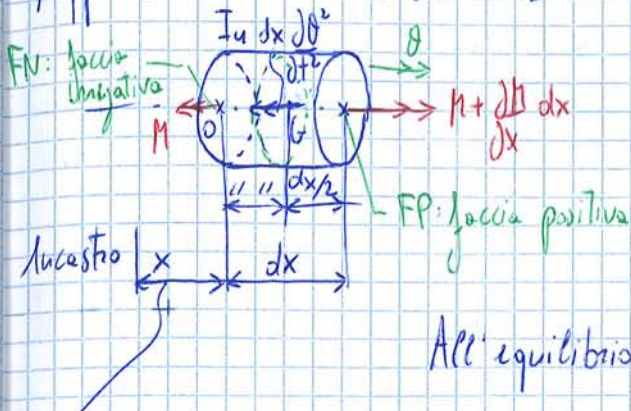 Iu dx ∂θ²
∂t²
FN: faccia
negativa
θ
M
O
G
M + ∂M dx
∂x
" " dx/2
FP: faccia positiva
Incastro x dx
All'equilibrio